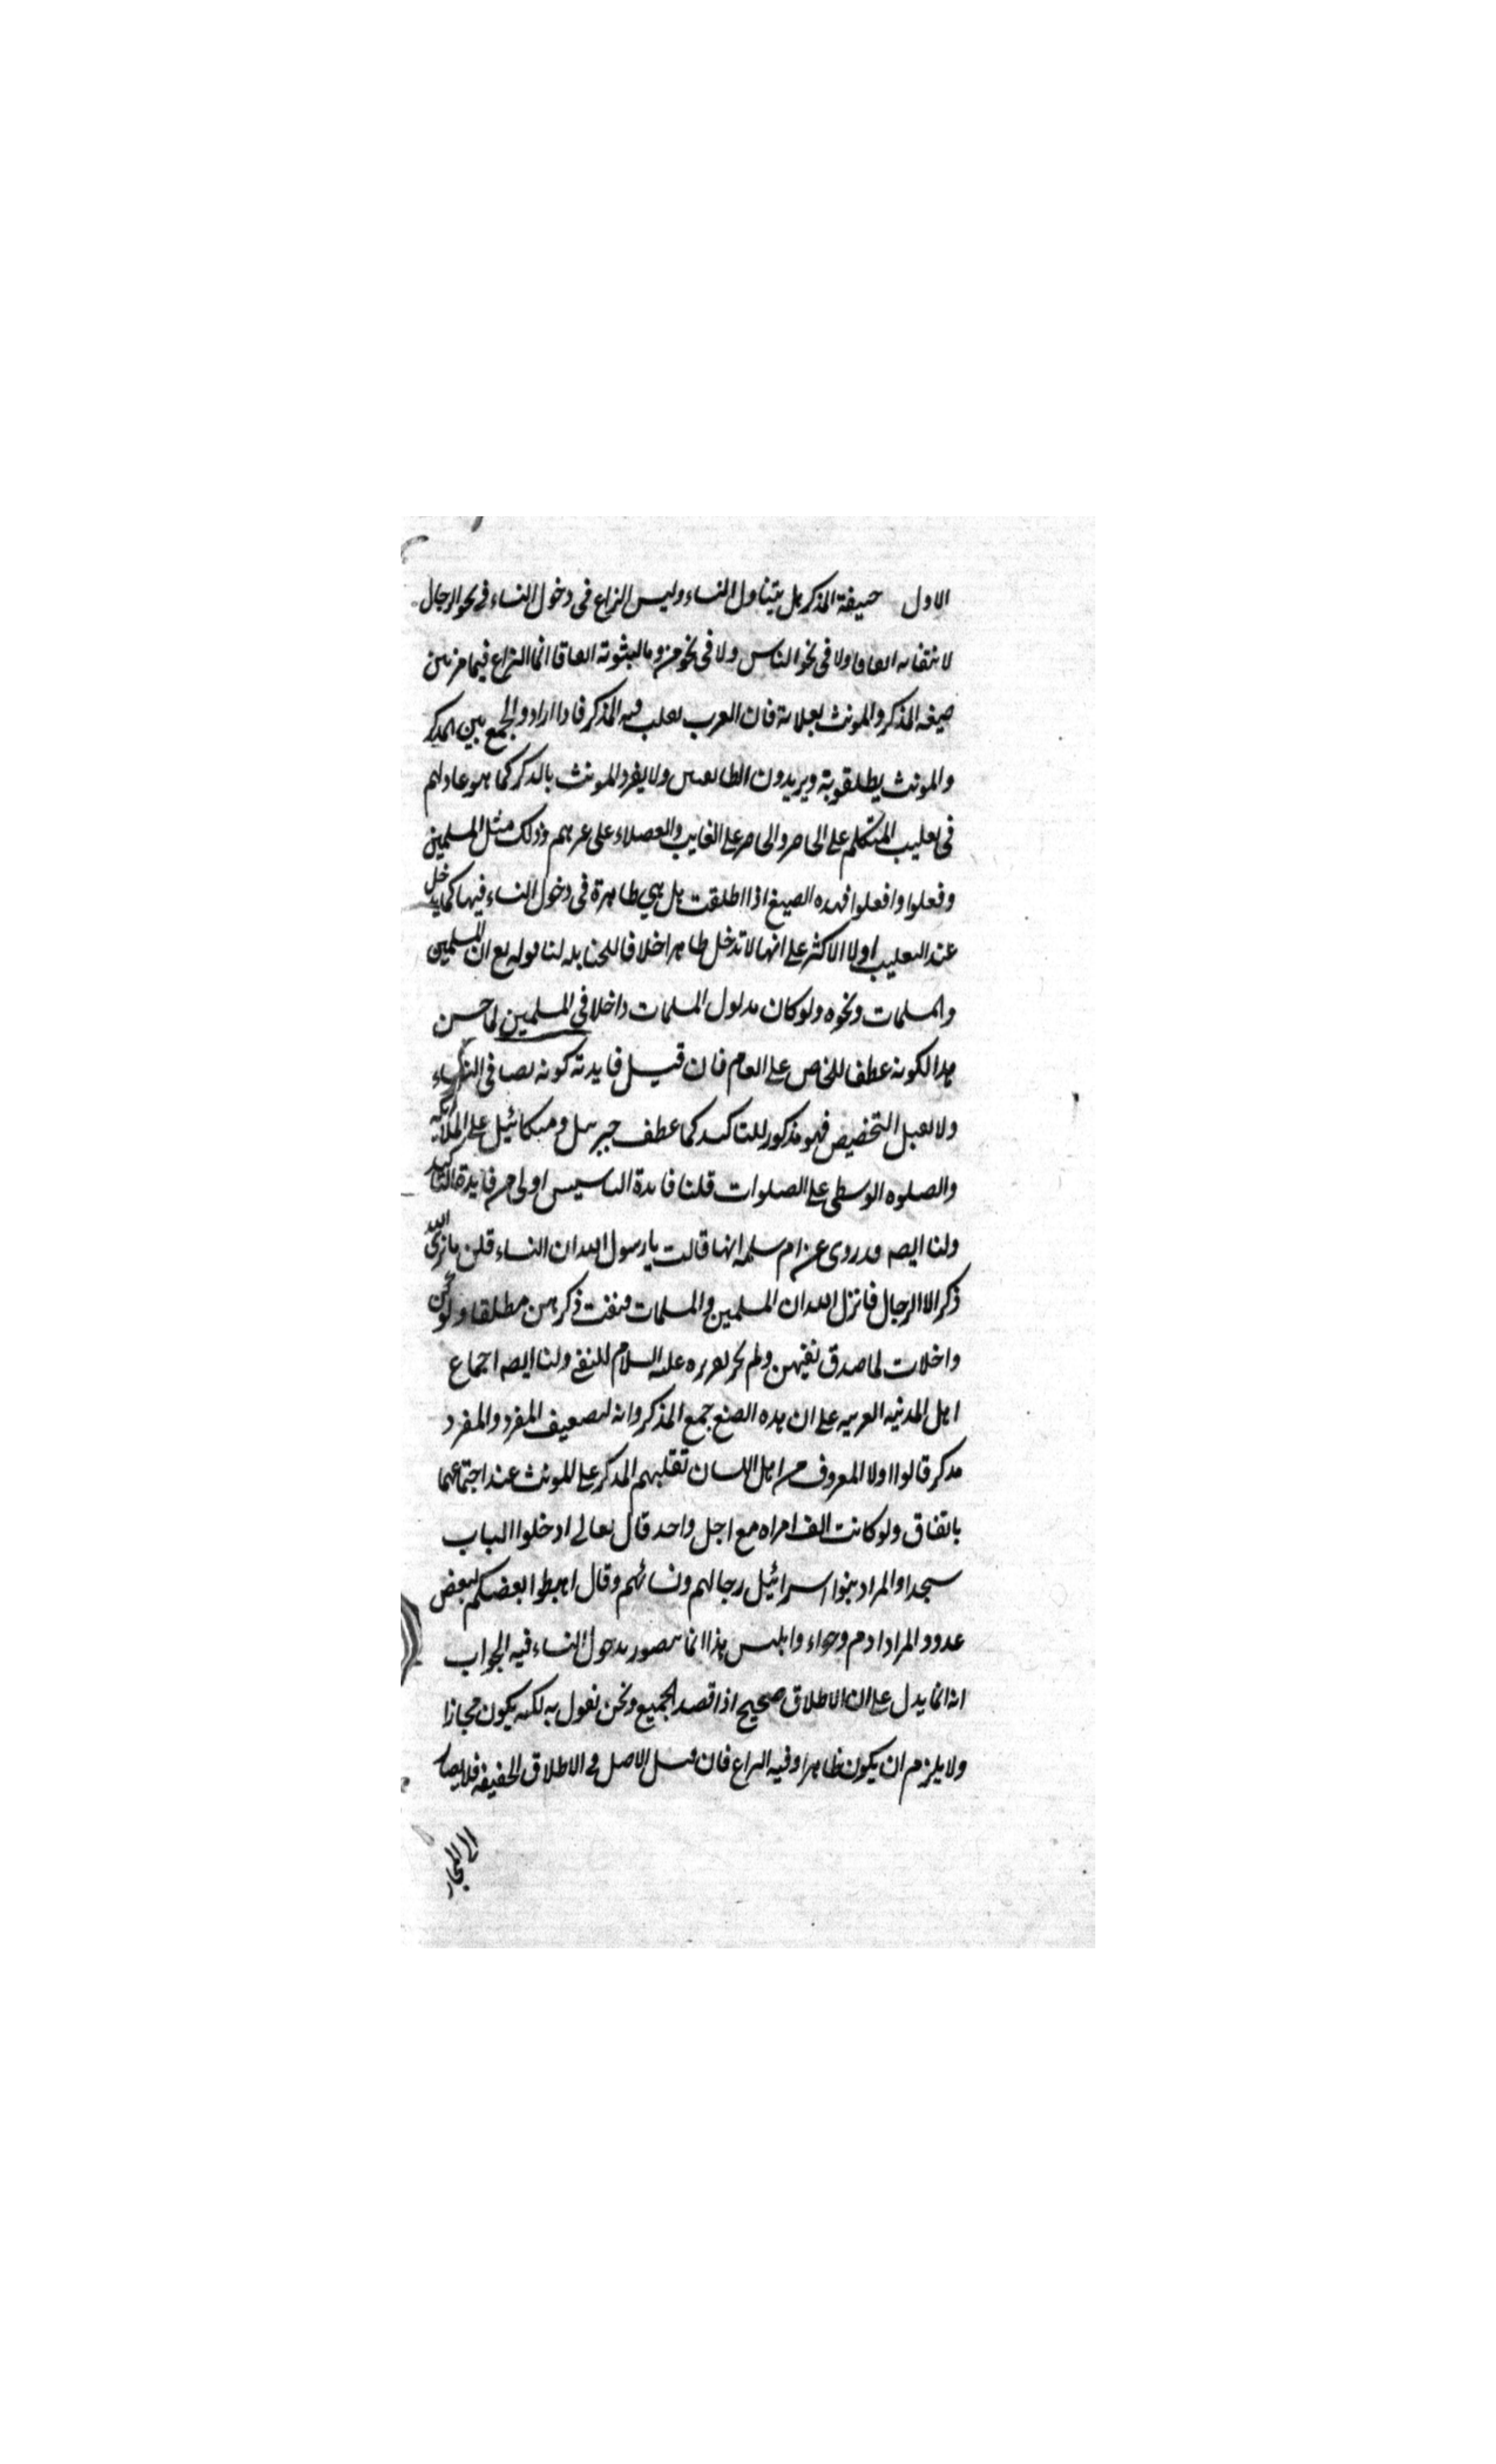 الاول صيغة المذكر هل يتناول النساء وليس النزاع فى دخول النساء فى نحو الرجال
لانتفائه اتفاقا ولا فى نحو الناس ولا فى نحو من وما لثبوته اتفاقا انما النزاع فيما مز بين
صيغه المذكر والمونث بعلامة فان العرب تغلب فيه المذكر فاذا ارادوا الجمع بين المذكر
والمونث يطلقوبة ويريدون الطائفتين ولا يفرد المونث بالذكر كما هو عادتهم
فى تغليب المتكلم على الحاضر والحاضر على الغايب والعقلاء على غيرهم وذلك مثل المسلمين
وفعلوا وافعلوا فهذه الصيغ اذا اطلقت هل هي ظاهرة فى دخول النساء فيها كما يدخل
عند التغليب اولا الاكثر على انها لا تدخل ظاهرا خلافا للحنابله لنا قوله تع ان المسلمين
والمسلمات ونحوه ولو كان مدلول المسلمات داخلا فى المسلمين لما حسن
هذا لكونه عطف للخاص على العام فان قيل فايدته كونه نصا فى النساء
ولا تقبل التخصيص فهو مذكور للتاكيد كما عطف جبرئيل وميكائيل على الملايكه
والصلوه الوسطى على الصلوات قلنا فائدة التاسيس اولى من فايدة التاكيد
ولنا ايضه قد روى عن ام سلمه انها قالت يا رسول الله ان النساء قلن ما نرى الله
ذكر الا الرجال فانزل الله ان المسلمين والمسلمات فنفت ذكرهن مطلقا ولو كن
داخلات لما صدق نفيهن ولم يجز تقريره عليه السلام للنفى ولنا ايضه اجماع
اهل المدنيه العربيه على ان هذه الصيغ جمع المذكر وانه لتضعيف المفرد والمفرد
مذكر قالوا اولا المعروف من اهل اللسان تغليبهم المذكر على المونث عند اجتماعهما
باتفاق ولو كانت الف امراه مع اجل واحد قال تعالى ادخلوا الباب
سجدا والمراد بنوا اسرائيل رجالهم ونسائهم وقال اهبطوا بعضكم لبعض
عدو والمراد ادم وحواء وابليس هذا انما يتصور بدخول النساء فيه الجواب
انه انما يدل على ان الاطلاق صحيح اذا قصد الجميع ونحن نقول به لكنه يكون مجازا
ولا يلزم ان يكون ظاهرا وفيه النزاع فان قيل الاصل فى الاطلاق الحقيقه فلا يصار
الى المجاز